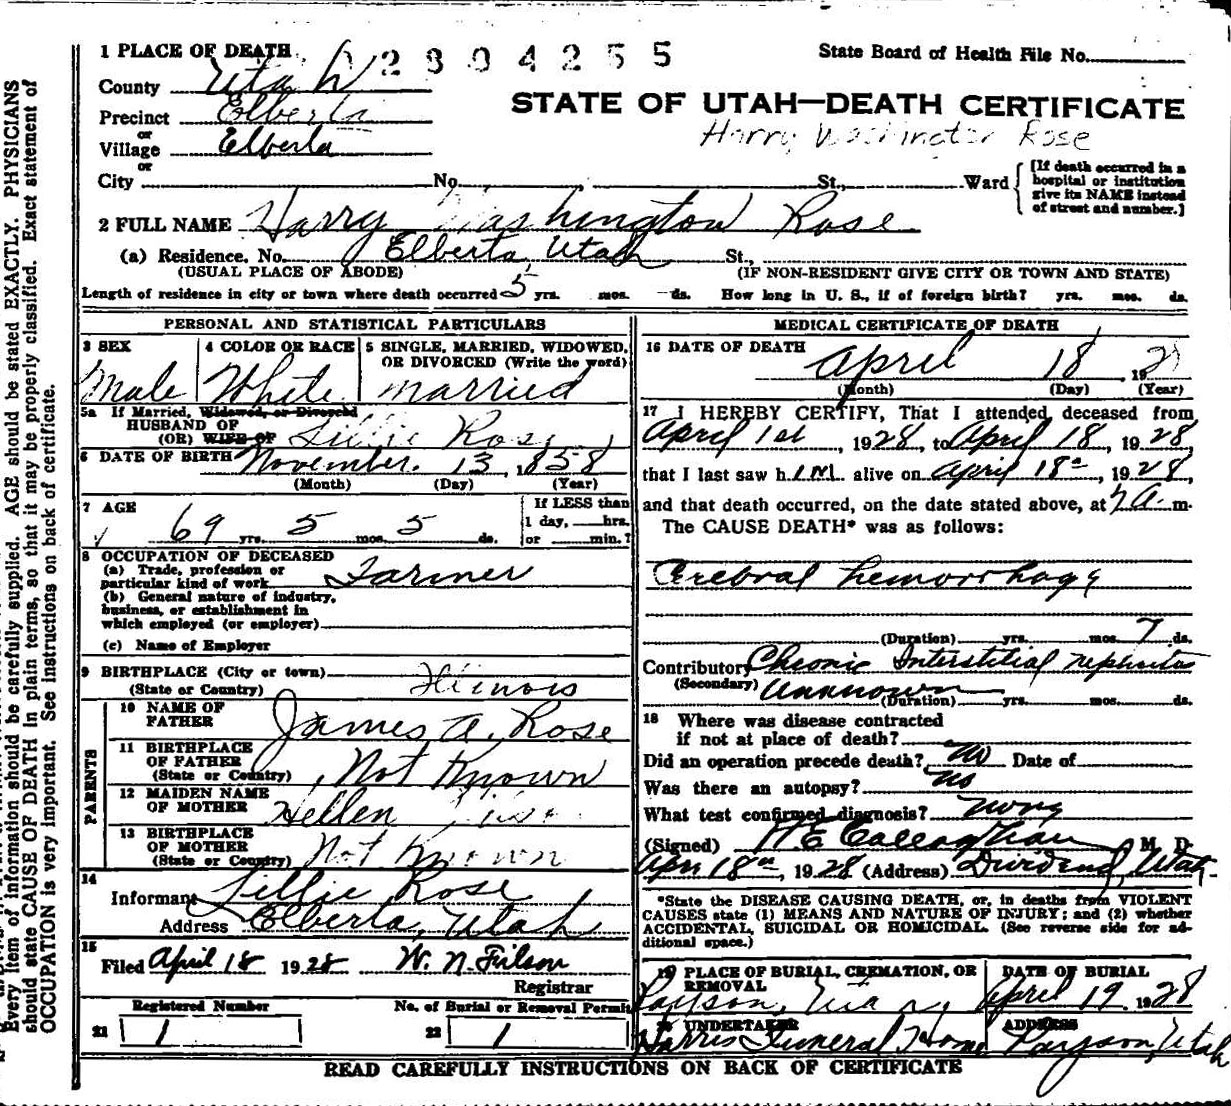 1 PLACE OF DEATH
2304255
State Board of Health File No.
County Utah
Precinct Elberta
or
Village Elberta
or
STATE OF UTAH—DEATH CERTIFICATE
Harry Washington Rose
City No. St., Ward
[If death occurred in a hospital or institution give its NAME instead of street and number.]
2 FULL NAME Harry Washington Rose
(a) Residence. No. Elberta, Utah St.,
(USUAL PLACE OF ABODE) (IF NON-RESIDENT GIVE CITY OR TOWN AND STATE)
Length of residence in city or town where death occurred 5 yrs. mos. ds. How long in U. S., if of foreign birth? yrs. mos. ds.
PERSONAL AND STATISTICAL PARTICULARS
3 SEX
Male
4 COLOR OR RACE
White
5 SINGLE, MARRIED, WIDOWED, OR DIVORCED (Write the word)
married
5a If Married, Widowed, or Divorced
HUSBAND OF
(OR) WIFE OF Lillie Rose
6 DATE OF BIRTH November 13, 1858
(Month) (Day) (Year)
7 AGE
69 yrs. 5 mos. 5 ds.
If LESS than
1 day, hrs.
or min.?
8 OCCUPATION OF DECEASED
(a) Trade, profession or
particular kind of work Farmer
(b) General nature of industry,
business, or establishment in
which employed (or employer)
(c) Name of Employer
9 BIRTHPLACE (City or town)
(State or Country) Illinois
PARENTS
10 NAME OF
FATHER James A. Rose
11 BIRTHPLACE
OF FATHER
(State or Country) Not Known
12 MAIDEN NAME
OF MOTHER Hellen
13 BIRTHPLACE
OF MOTHER
(State or Country) Not Known
14
Informant Lillie Rose
Address Elberta, Utah
15
Filed April 18 1928 W. N. Filson
Registrar
Registered Number
21 1
No. of Burial or Removal Permit
22 1
MEDICAL CERTIFICATE OF DEATH
16 DATE OF DEATH
April 18, 192
(Month) (Day) (Year)
17 I HEREBY CERTIFY, That I attended deceased from
April 1st, 1928, to April 18, 1928,
that I last saw him alive on April 18, 1928,
and that death occurred, on the date stated above, at a m.
The CAUSE DEATH* was as follows:
Cerebral hemorrhage
(Duration) yrs. mos. 7 ds.
Contributory Chronic Interstitial nephritis
(Secondary) unknown
(Duration) yrs. mos. ds.
18 Where was disease contracted
if not at place of death?
Did an operation precede death? no Date of
Was there an autopsy? no
What test confirmed diagnosis? none
(Signed) H E Callaghan M. D.
Apr 18, 1928 (Address) Dividend, Utah
*State the DISEASE CAUSING DEATH, or, in deaths from VIOLENT
CAUSES state (1) MEANS AND NATURE OF INJURY; and (2) whether
ACCIDENTAL, SUICIDAL OR HOMICIDAL. (See reverse side for ad-
ditional space.)
19 PLACE OF BURIAL, CREMATION, OR
REMOVAL
Payson, Utah
DATE OF BURIAL
April 19 1928
20 UNDERTAKER
Harris Funeral Home
ADDRESS
Payson, Utah
READ CAREFULLY INSTRUCTIONS ON BACK OF CERTIFICATE
Every item of information should be carefully supplied. AGE should be stated EXACTLY. PHYSICIANS
should state CAUSE OF DEATH in plain terms, so that it may be properly classified. Exact statement of
OCCUPATION is very important. See instructions on back of certificate.